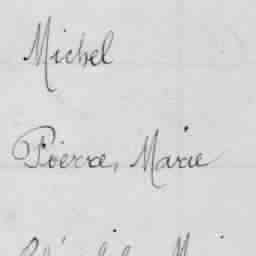 Michel
Pierre, Marie